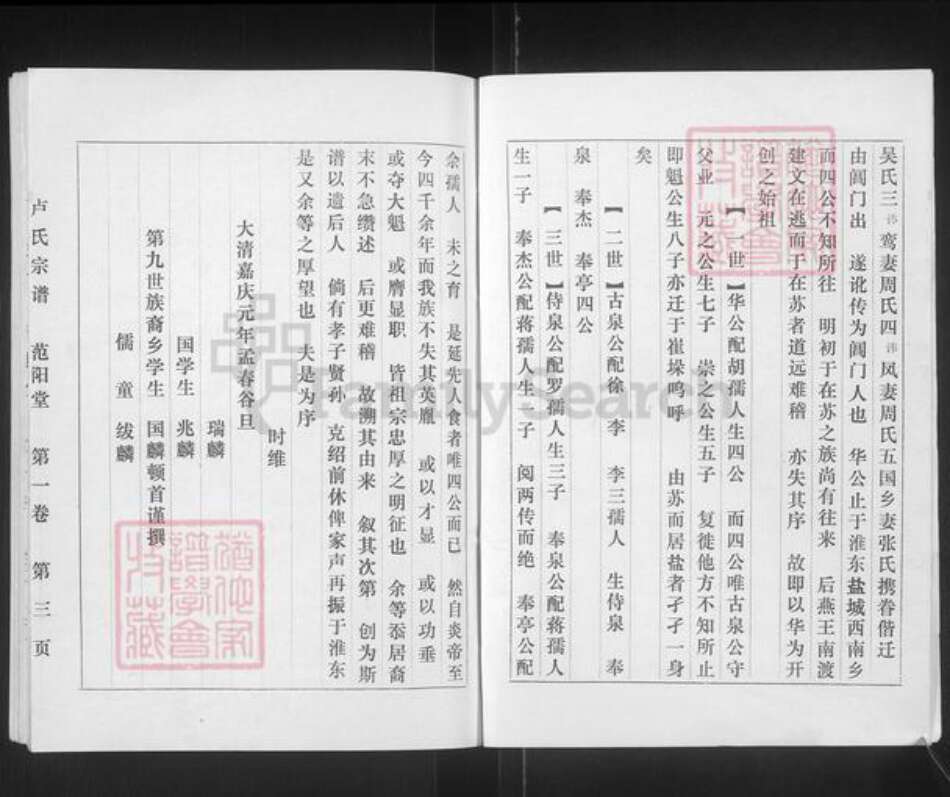 吴氏三 讳 鸾妻周氏四 讳 凤妻周氏五国乡妻张氏携眷偕迁
由阊门出 遂讹传为阊门人也 华公止于淮东盐城西南乡
而四公不知所往 明初于在苏之族尚有往来 后燕王南渡
建文在逃而于在苏者道远难稽 亦失其序 故即以华为开
创之始祖
【一世】华公配胡孺人生四公 而四公唯古泉公守
父业 元之公生七子 崇之公生五子 复徙他方不知所止
即魁公生八子亦迁于崔垛呜呼 由苏而居盐者孑孑一身
矣
【二世】古泉公配徐 李 李三孺人 生侍泉 奉
泉 奉杰 奉亭四公
【三世】侍泉公配罗孺人生三子 奉泉公配蒋孺人
生一子 奉杰公配蒋孺人生一子 阅两传而绝 奉亭公配
余孺人 未之育 是延先人食者唯四公而已 然自炎帝至
今四千余年而我族不失其英胤 或以才显 或以功垂
或夺大魁 或膺显职 皆祖宗忠厚之明征也 余等忝居裔
末不急缵述 后更难稽 故溯其由来 叙其次第 创为斯
谱以遗后人 倘有孝子贤孙 克绍前休俾家声再振于淮东
是又余等之厚望也 夫是为序
时维
大清嘉庆元年孟春谷旦
瑞麟
国学生 兆麟
第九世族裔乡学生 国麟顿首谨撰
儒 童 绂麟
卢氏宗谱 范阳堂 第一卷 第三页
FamilySearch